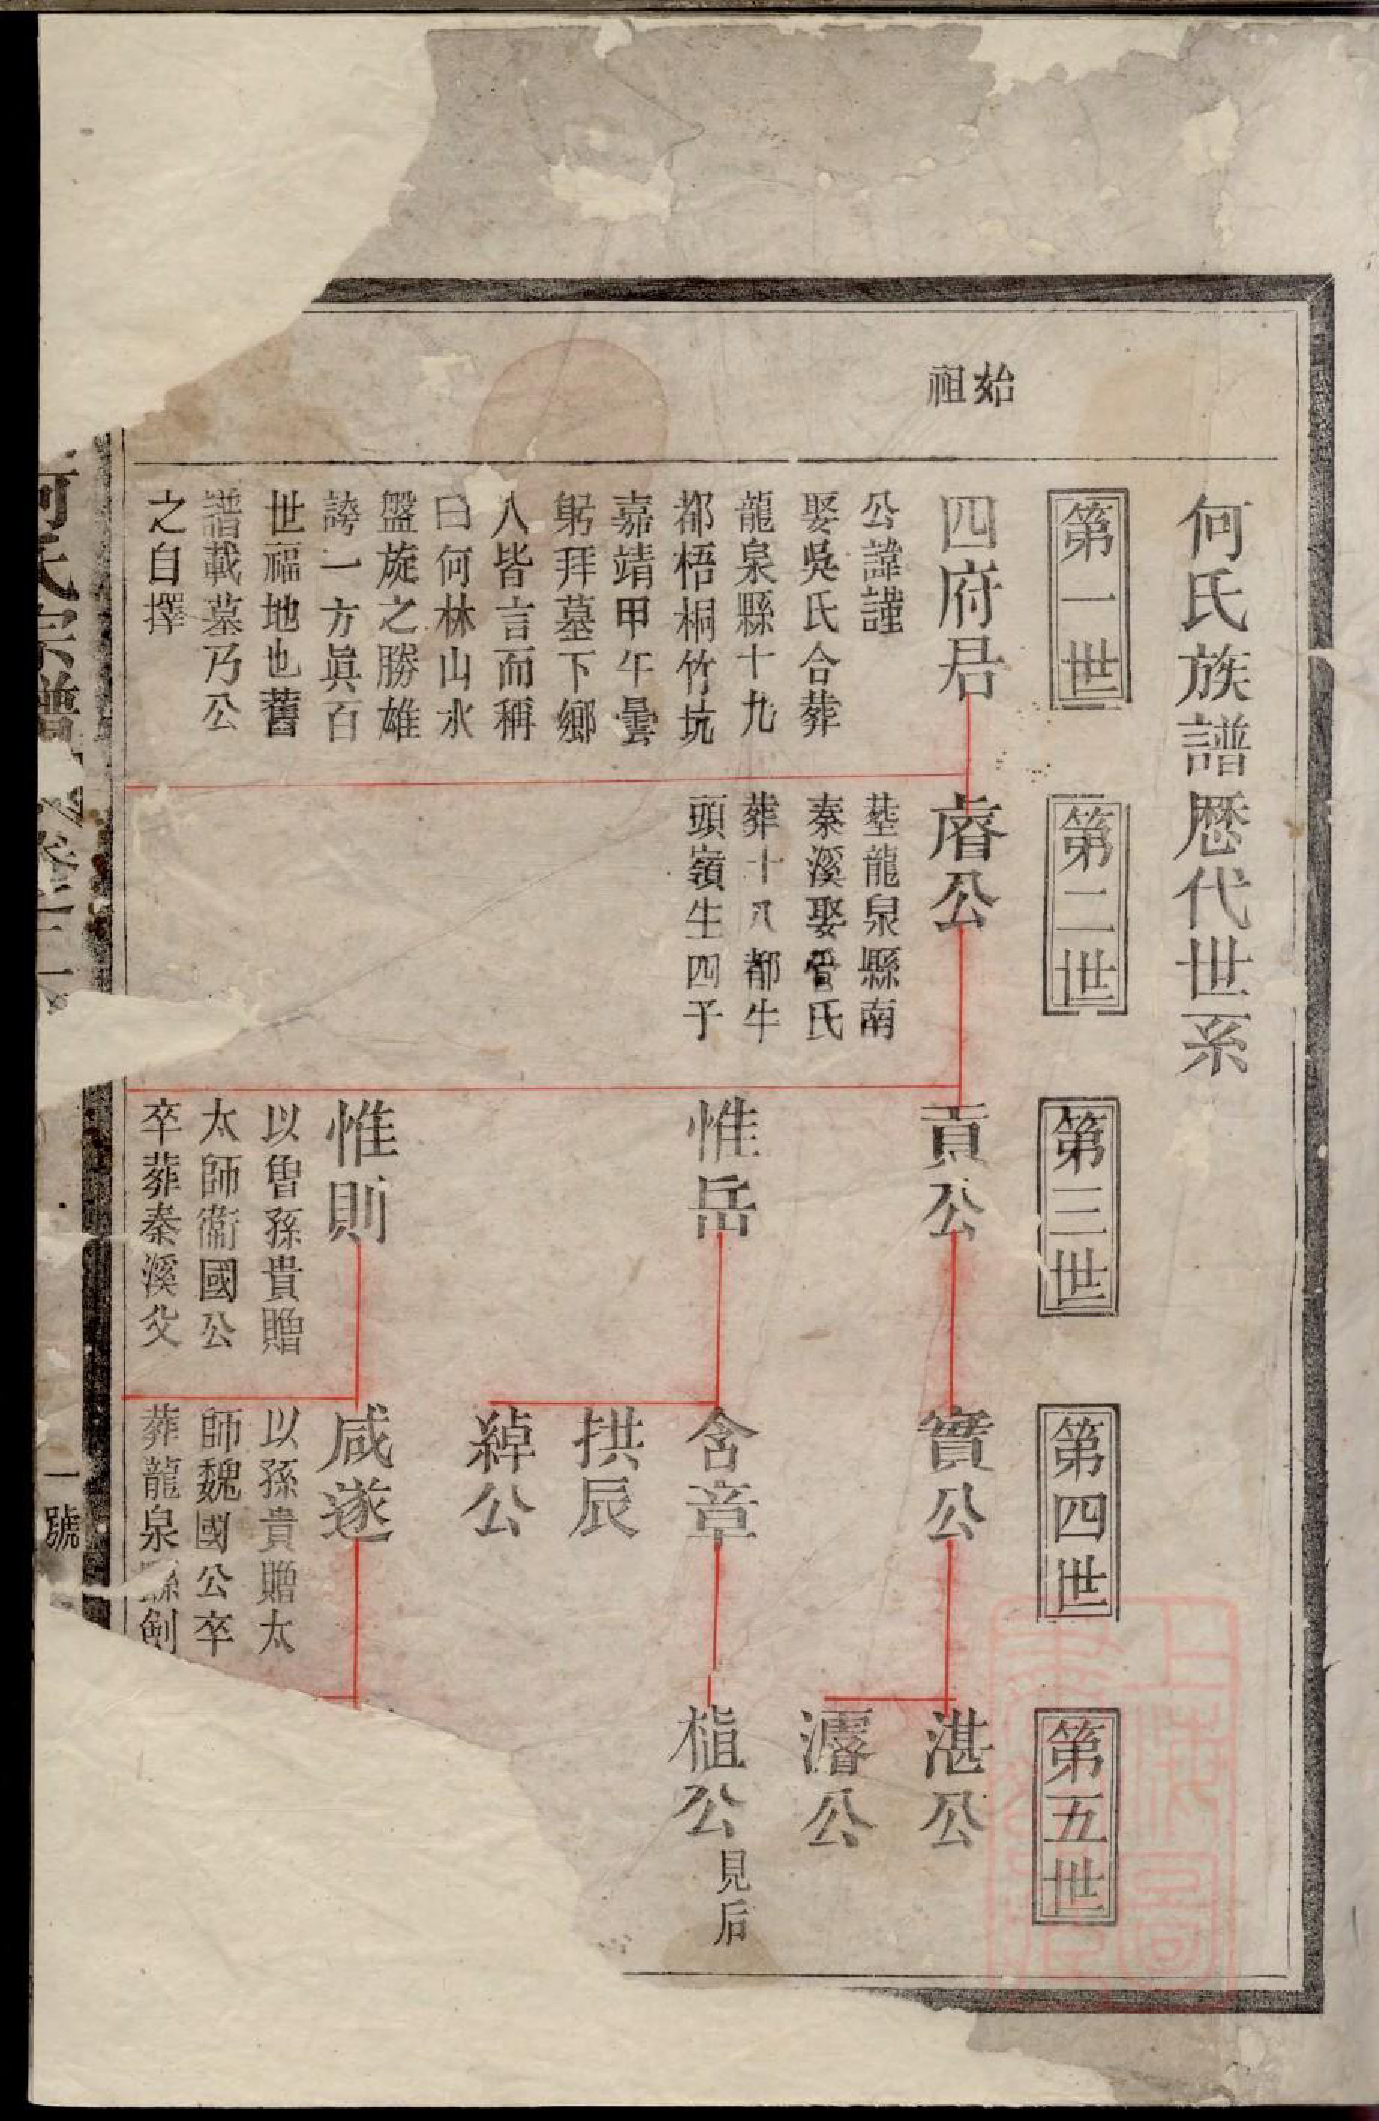 何氏族譜歷代世系
第一世
第二世
第三世
第四世
第五世
始
祖
四府君
公諱謹
娶吳氏合葬
龍泉縣十九
都梧桐竹坑
嘉靖甲午曇
躬拜墓下鄉
人皆言而稱
曰何林山水
盤旋之勝雄
誇一方眞百
世福地也舊
譜載墓乃公
之自擇
睿公
龍泉縣南
秦溪娶管氏
葬十八都牛
頭嶺生四子
貢公
惟岳
惟則
以曾孫貴贈
太師衞國公
卒葬秦溪父
實公
含章
拱辰
綽公
咸遂
以孫貴贈太
師魏國公卒
葬龍泉縣劍
湛公
濬公
植公
見后
何氏宗譜
卷十二
一號
上海圖